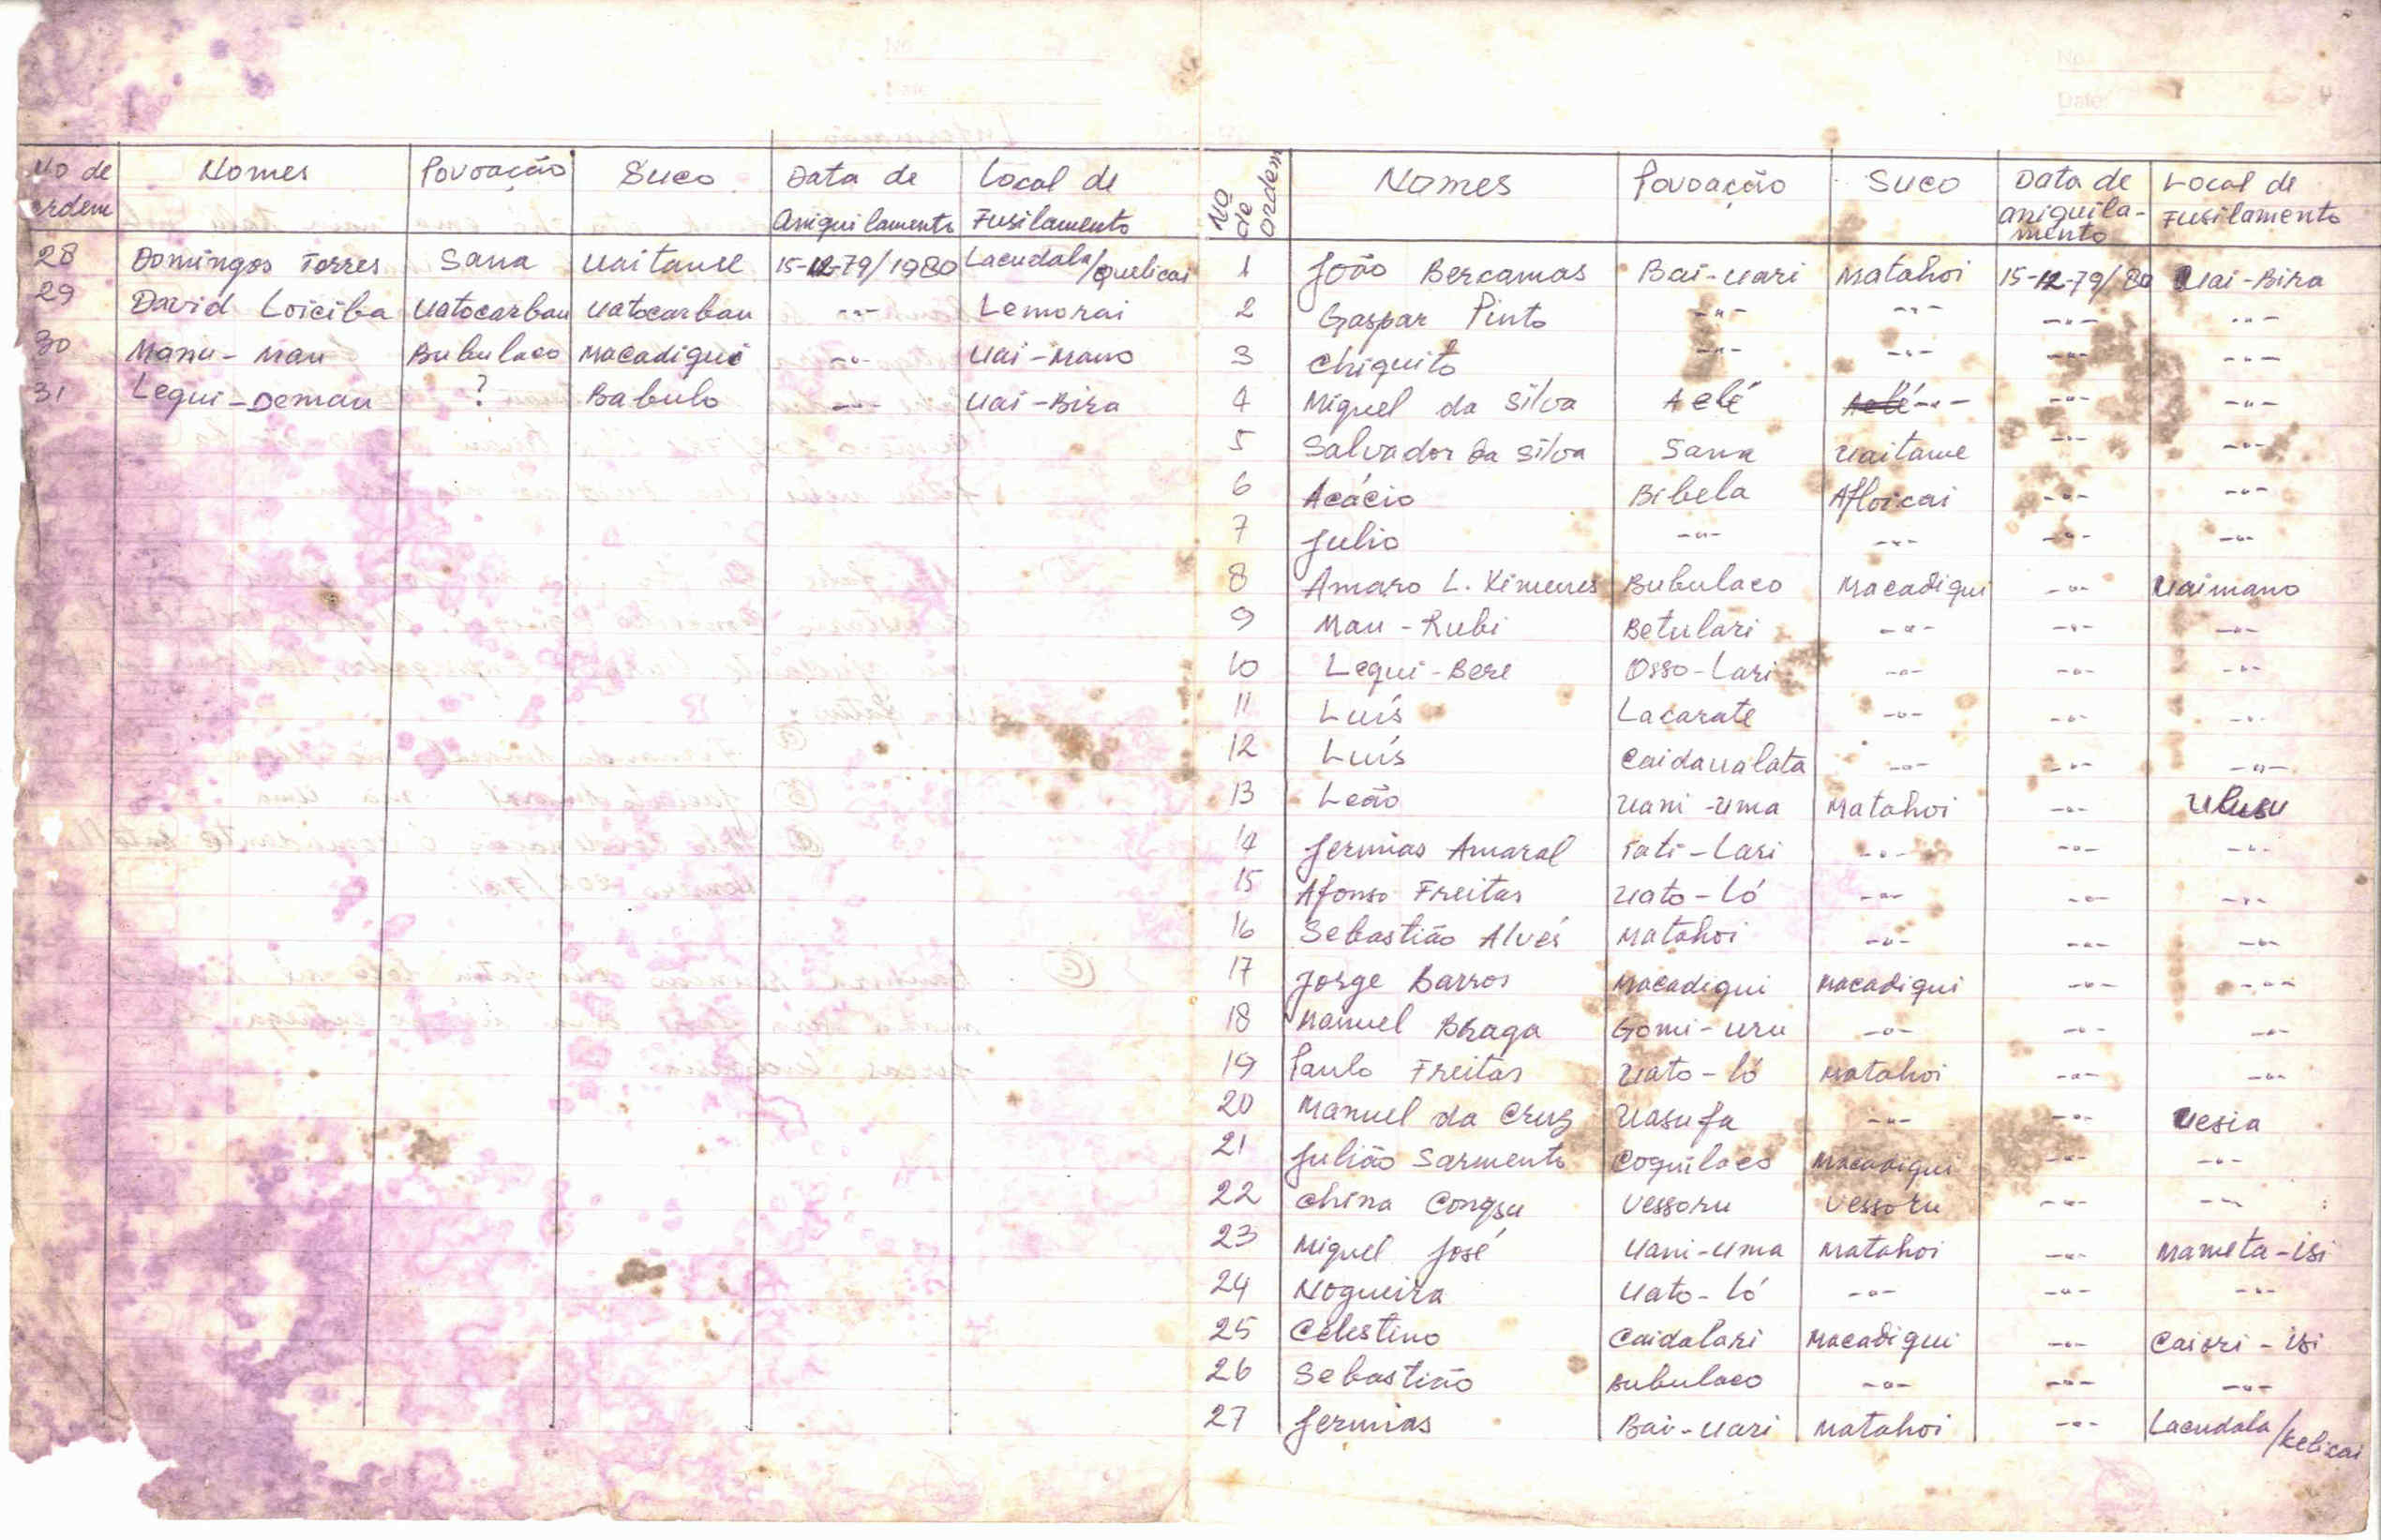 No de ordem Nomes Povoação Suco Data de Aniquilamento Local de Fusilamento
28 Domingos Torres Sana Uaitame 15-12-79/1980 Lacudala/Quelicai
29 David Loiciba Uatocarbau Uatocarbau -"- Lemorai
30 Manu-Mau Bubulaco Macadiqui -"- Uai-Mano
31 Lequi-Demau ? Babulo -"- Uai-Bira
No de ordem Nomes Povoação Suco Data de aniquila-mento Local de Fusilamento
1 João Bercamas Bai-Uari Matahoi 15-12-79/80 Uai-Bira
2 Gaspar Pinto -"- -"- -"- -"-
3 Chiquito -"- -"- -"- -"-
4 Miguel da Silva Aelé Aelé -"- -"- -"-
5 Salvador da Silva Sana Uaitame -"- -"-
6 Acácio Bibela Afloicai -"- -"-
7 Julio -"- -"- -"- -"-
8 Amaro L. Ximenes Bubulaco Macadiqui -"- Uaimano
9 Mau-Rubi Betulari -"- -"- -"-
10 Lequi-Bere Osso-Lari -"- -"- -"-
11 Luís Lacarate -"- -"- -"-
12 Luís Caidaualata -"- -"- -"-
13 Leão Uani-Uma Matahoi -"- Ulusu
14 Jermias Amaral Tati-Lari -"- -"- -"-
15 Afonso Freitas Uato-Ló -"- -"- -"-
16 Sebastião Alves Matahoi -"- -"- -"-
17 Jorge Barros Macadiqui Macadiqui -"- -"-
18 Manuel Braga Gomi-Uru -"- -"- -"-
19 Paulo Freitas Uato-Ló Matahoi -"- -"-
20 Manuel da Cruz Uasufa -"- -"- Uesia
21 Julião Sarmento Coquilaco Macadiqui -"- -"-
22 China Congsu Vessoru Vessoru -"- -"-
23 Miguel José Uani-Uma Matahoi -"- Mameta-Isi
24 Nogueira Uato-Ló -"- -"- -"-
25 Celestino Caidalari Macadiqui -"- Caiori-Isi
26 Sebastião Bubulaco -"- -"- -"-
27 Jermias Bai-Uari Matahoi -"- Lacudala/Kelicai